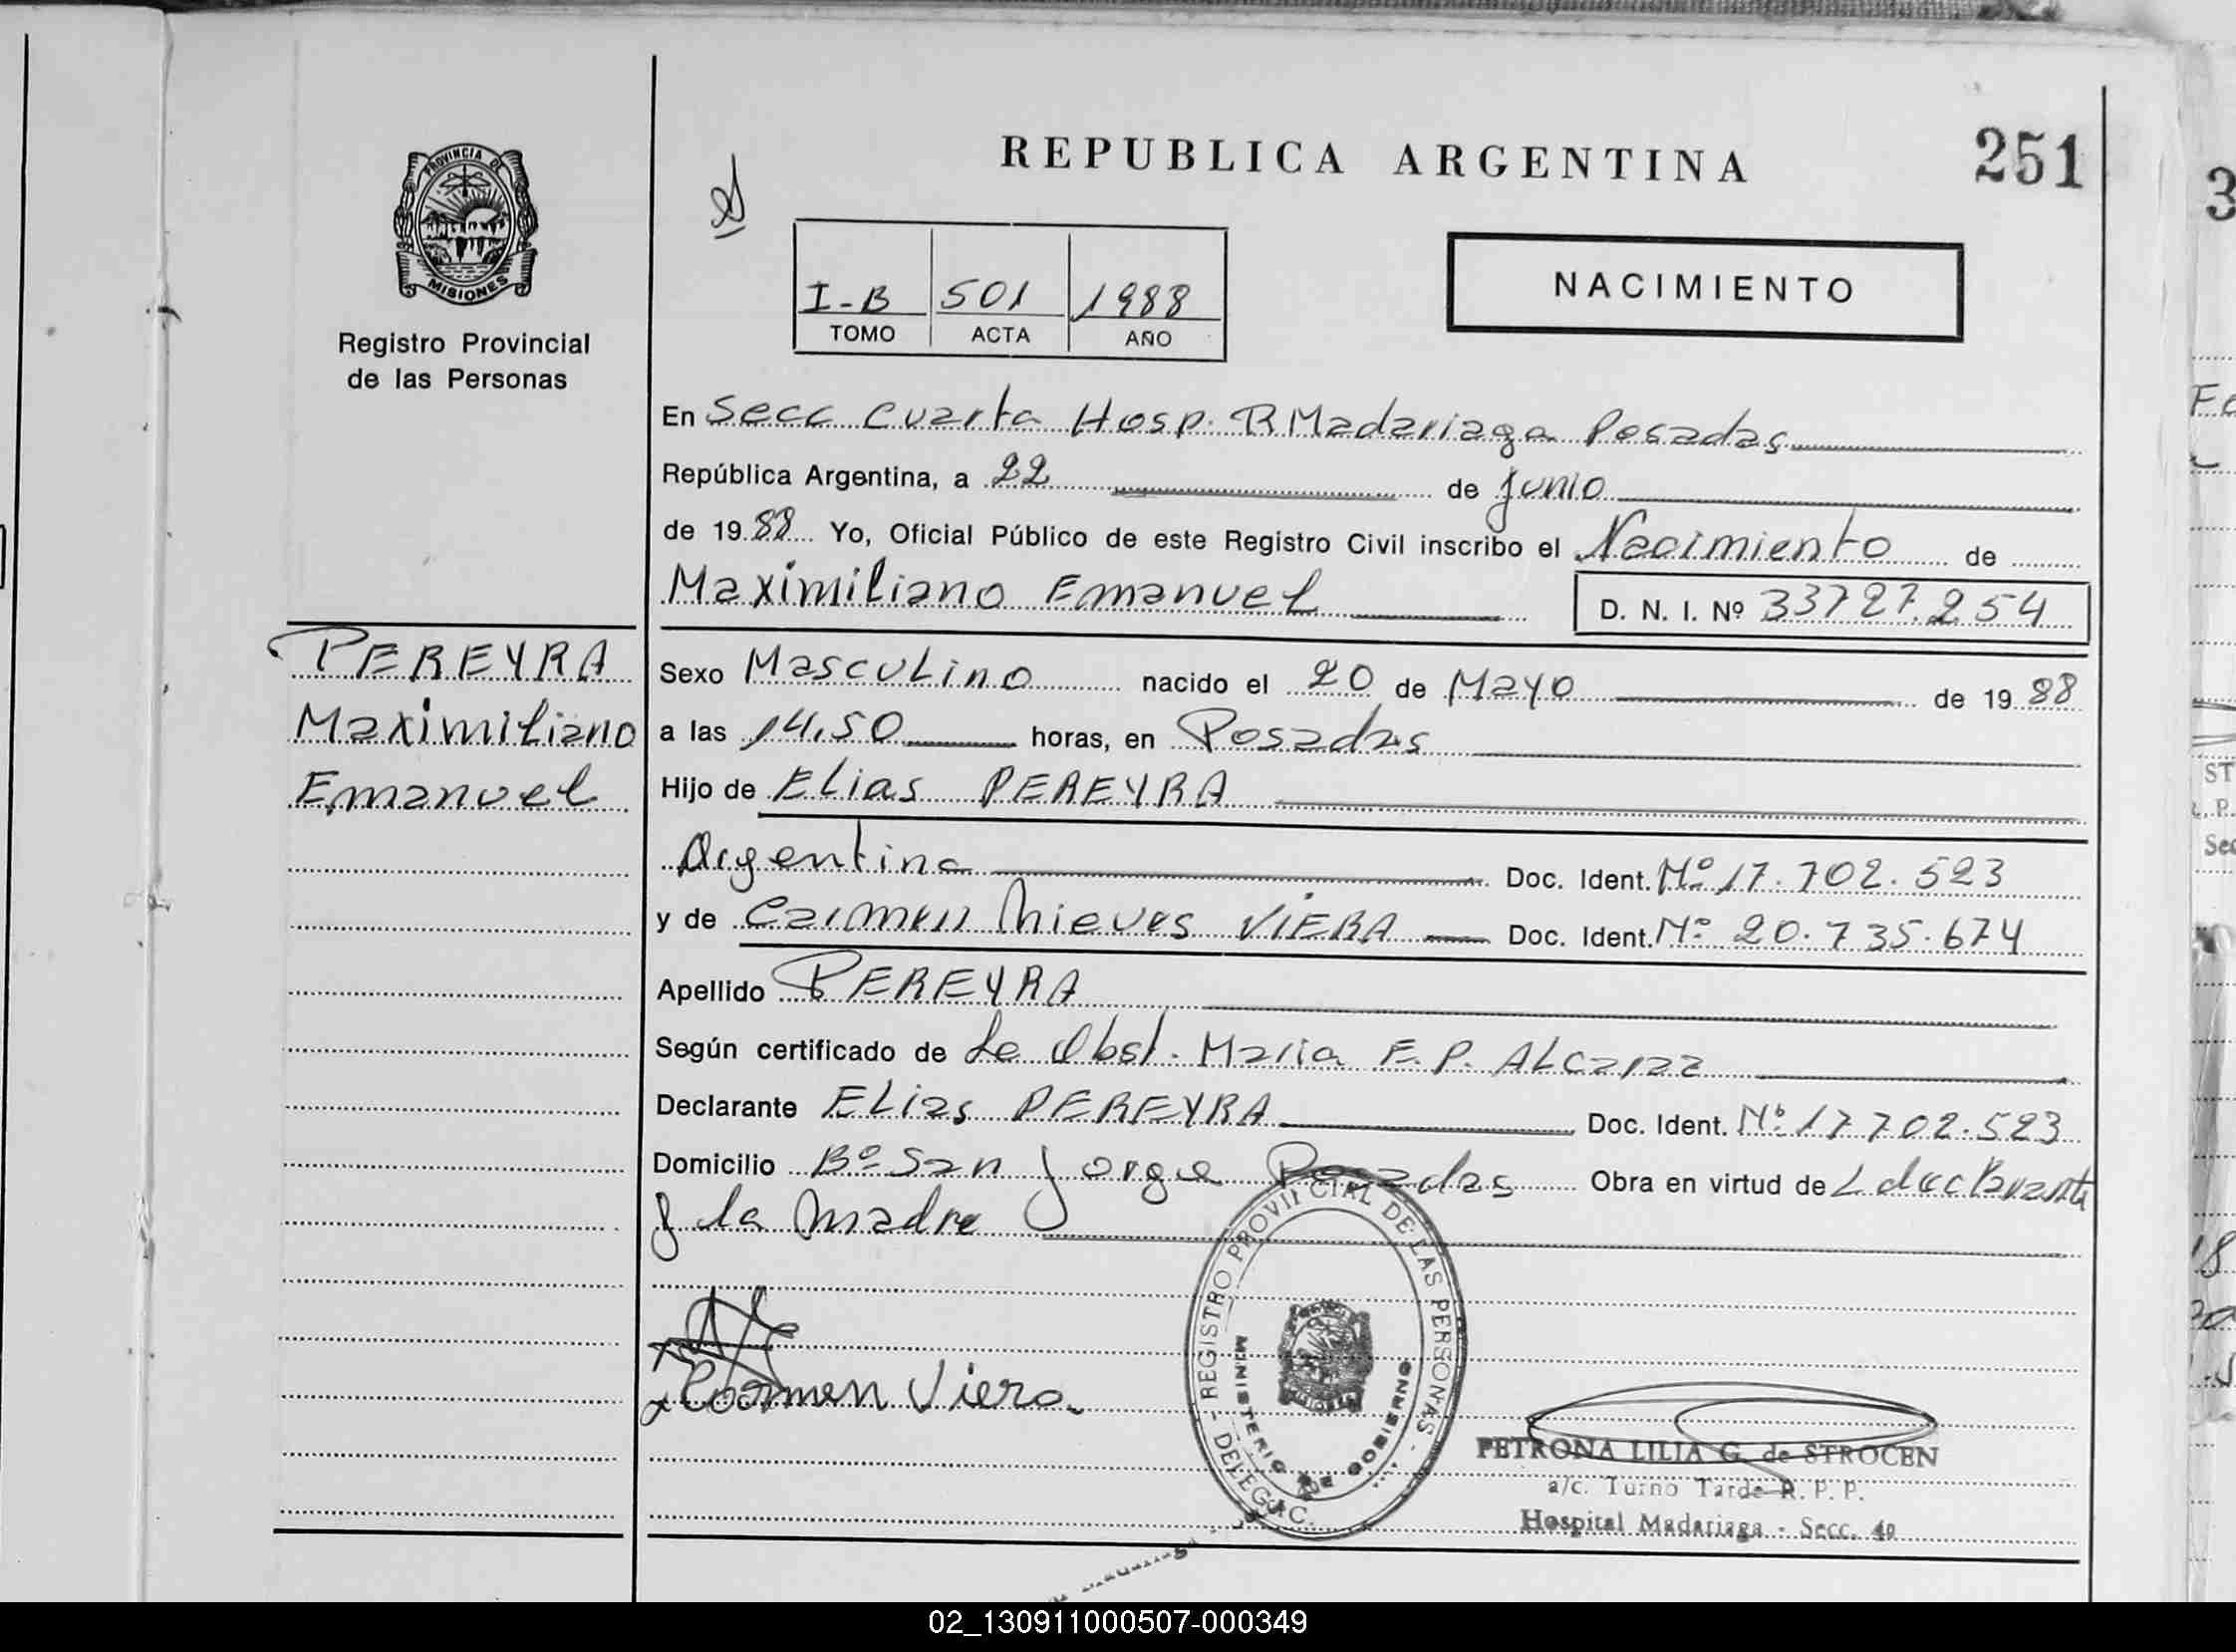 REPUBLICA ARGENTINA
251
PROVINCIA DE
MISIONES
Registro Provincial
de las Personas
I-B 501 1988
TOMO ACTA AÑO
NACIMIENTO
En Secc Cuarta Hosp. R Madariaga Posadas
República Argentina, a 22 de Junio
de 1988 Yo, Oficial Público de este Registro Civil inscribo el Nacimiento de
Maximiliano Emanuel
D. N. I. Nº 33727.254
PEREYRA
Maximiliano
Emanuel
Sexo Masculino nacido el 20 de Mayo de 1988
a las 14,50 horas, en Posadas
Hijo de Elias PEREYRA
Argentina Doc. Ident. Nº 17.702.523
y de Carmen Nieves VIERA Doc. Ident. Nº 20.735.674
Apellido PEREYRA
Según certificado de La Obst. Maria E. P. Alcaraz
Declarante Elias PEREYRA Doc. Ident. Nº 17702.523
Domicilio Bº San Jorge Posadas Obra en virtud de L declarante
y la madre
Carmen Viera
REGISTRO PROVINCIAL DE LAS PERSONAS - DELEGAC.
MINISTERIO DE GOBIERNO
PETRONA LILIA G. de STROCEN
a/c. Turno Tarde R. P. P.
Hospital Madariaga - Secc. 4a
02_130911000507-000349